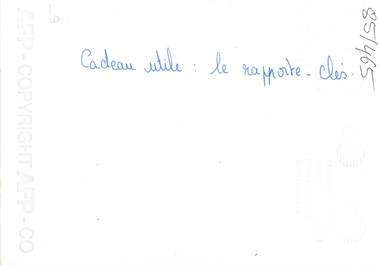 Cadeau utile : le rapporte-clés.
85/465
AFP - COPYRIGHT AFP - CO